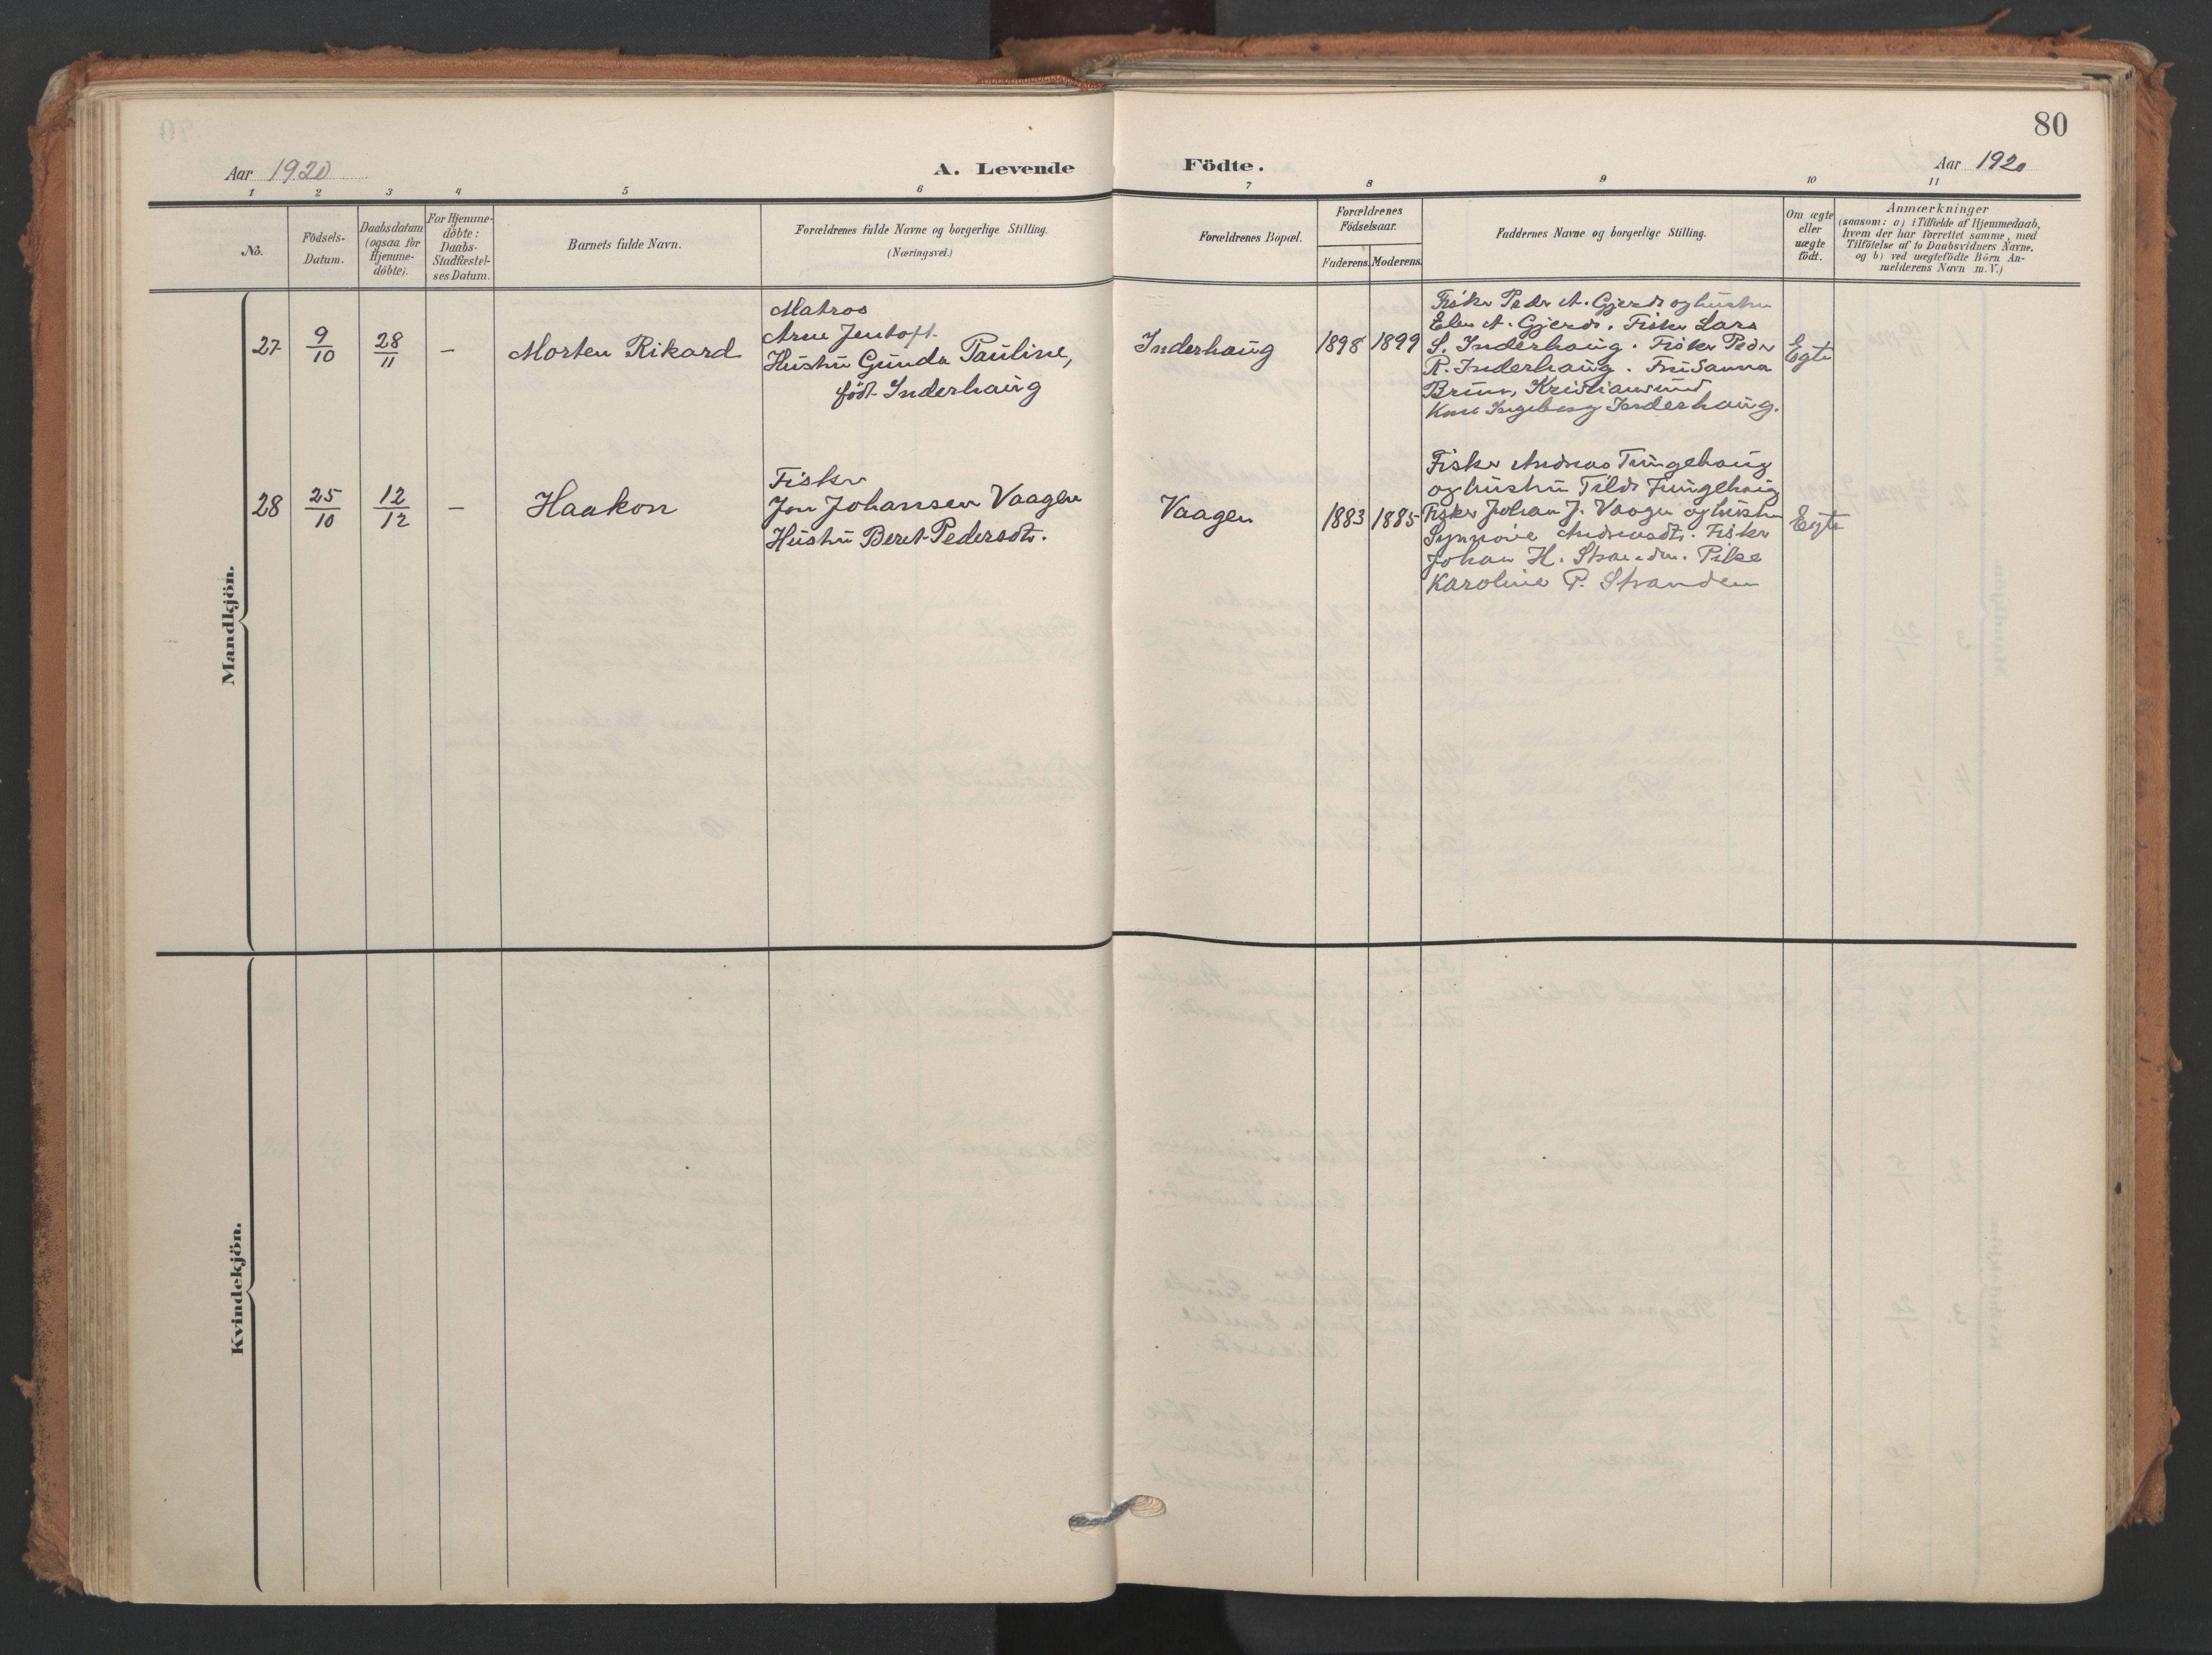 80
Aar 1920
A. Levende Födte.
Aar 1920
1 2 3 4 5 6 7 8 9 10 11
No.
Födsels-
Datum.
Daabsdatum
(ogsaa for
Hjemme-
döbte).
For Hjemme-
döbte:
Daabs-
Stadfæstel-
ses Datum.
Barnets fulde Navn.
Forældrenes fulde Navne og borgerlige Stilling.
(Næringsvei.)
Forældrenes Bopæl.
Forældrenes
Födselsaar.
Faderens. Moderens.
Faddernes Navne og borgerlige Stilling.
Om ægte
eller
uægte
födt.
Anmærkninger
(saasom: a) i Tilfælde af Hjemmedaab,
hvem der har forrettet samme, med
Tilföielse af to Daabsvidners Navne,
og b) ved uægtefödte Börn An-
melderens Navn m. V.)
Mandkjön.
27
9/10
28/11
–
Morten Rikard
Matros
Arne Jentoft
Hustru Gunda Pauline,
födt Inderhaug
Inderhaug
1898
1899
Fisker Peder A. Gjerde og hustru
Elen A. Gjerde. Fisker Lars
S. Inderhaug. Fisker Peder
R. Inderhaug. Fru Sanna
Bruun, Kristiansund
Ingeborg Inderhaug.
Egte
28
25/10
12/12
–
Haakon
Fisker
Jon Johansen Vaagen
Hustru Beret Pedersdtr.
Vaagen
1883
1885
Fisker Andreas Tungehaug
og hustru Tungehaug
Fisker Johan J. Vaagen og hustru
Synnöve Andreasdtr. Fisker
Johan H. Stranden. Pike
Karoline P. Stranden
Egte
Kvindekjön.